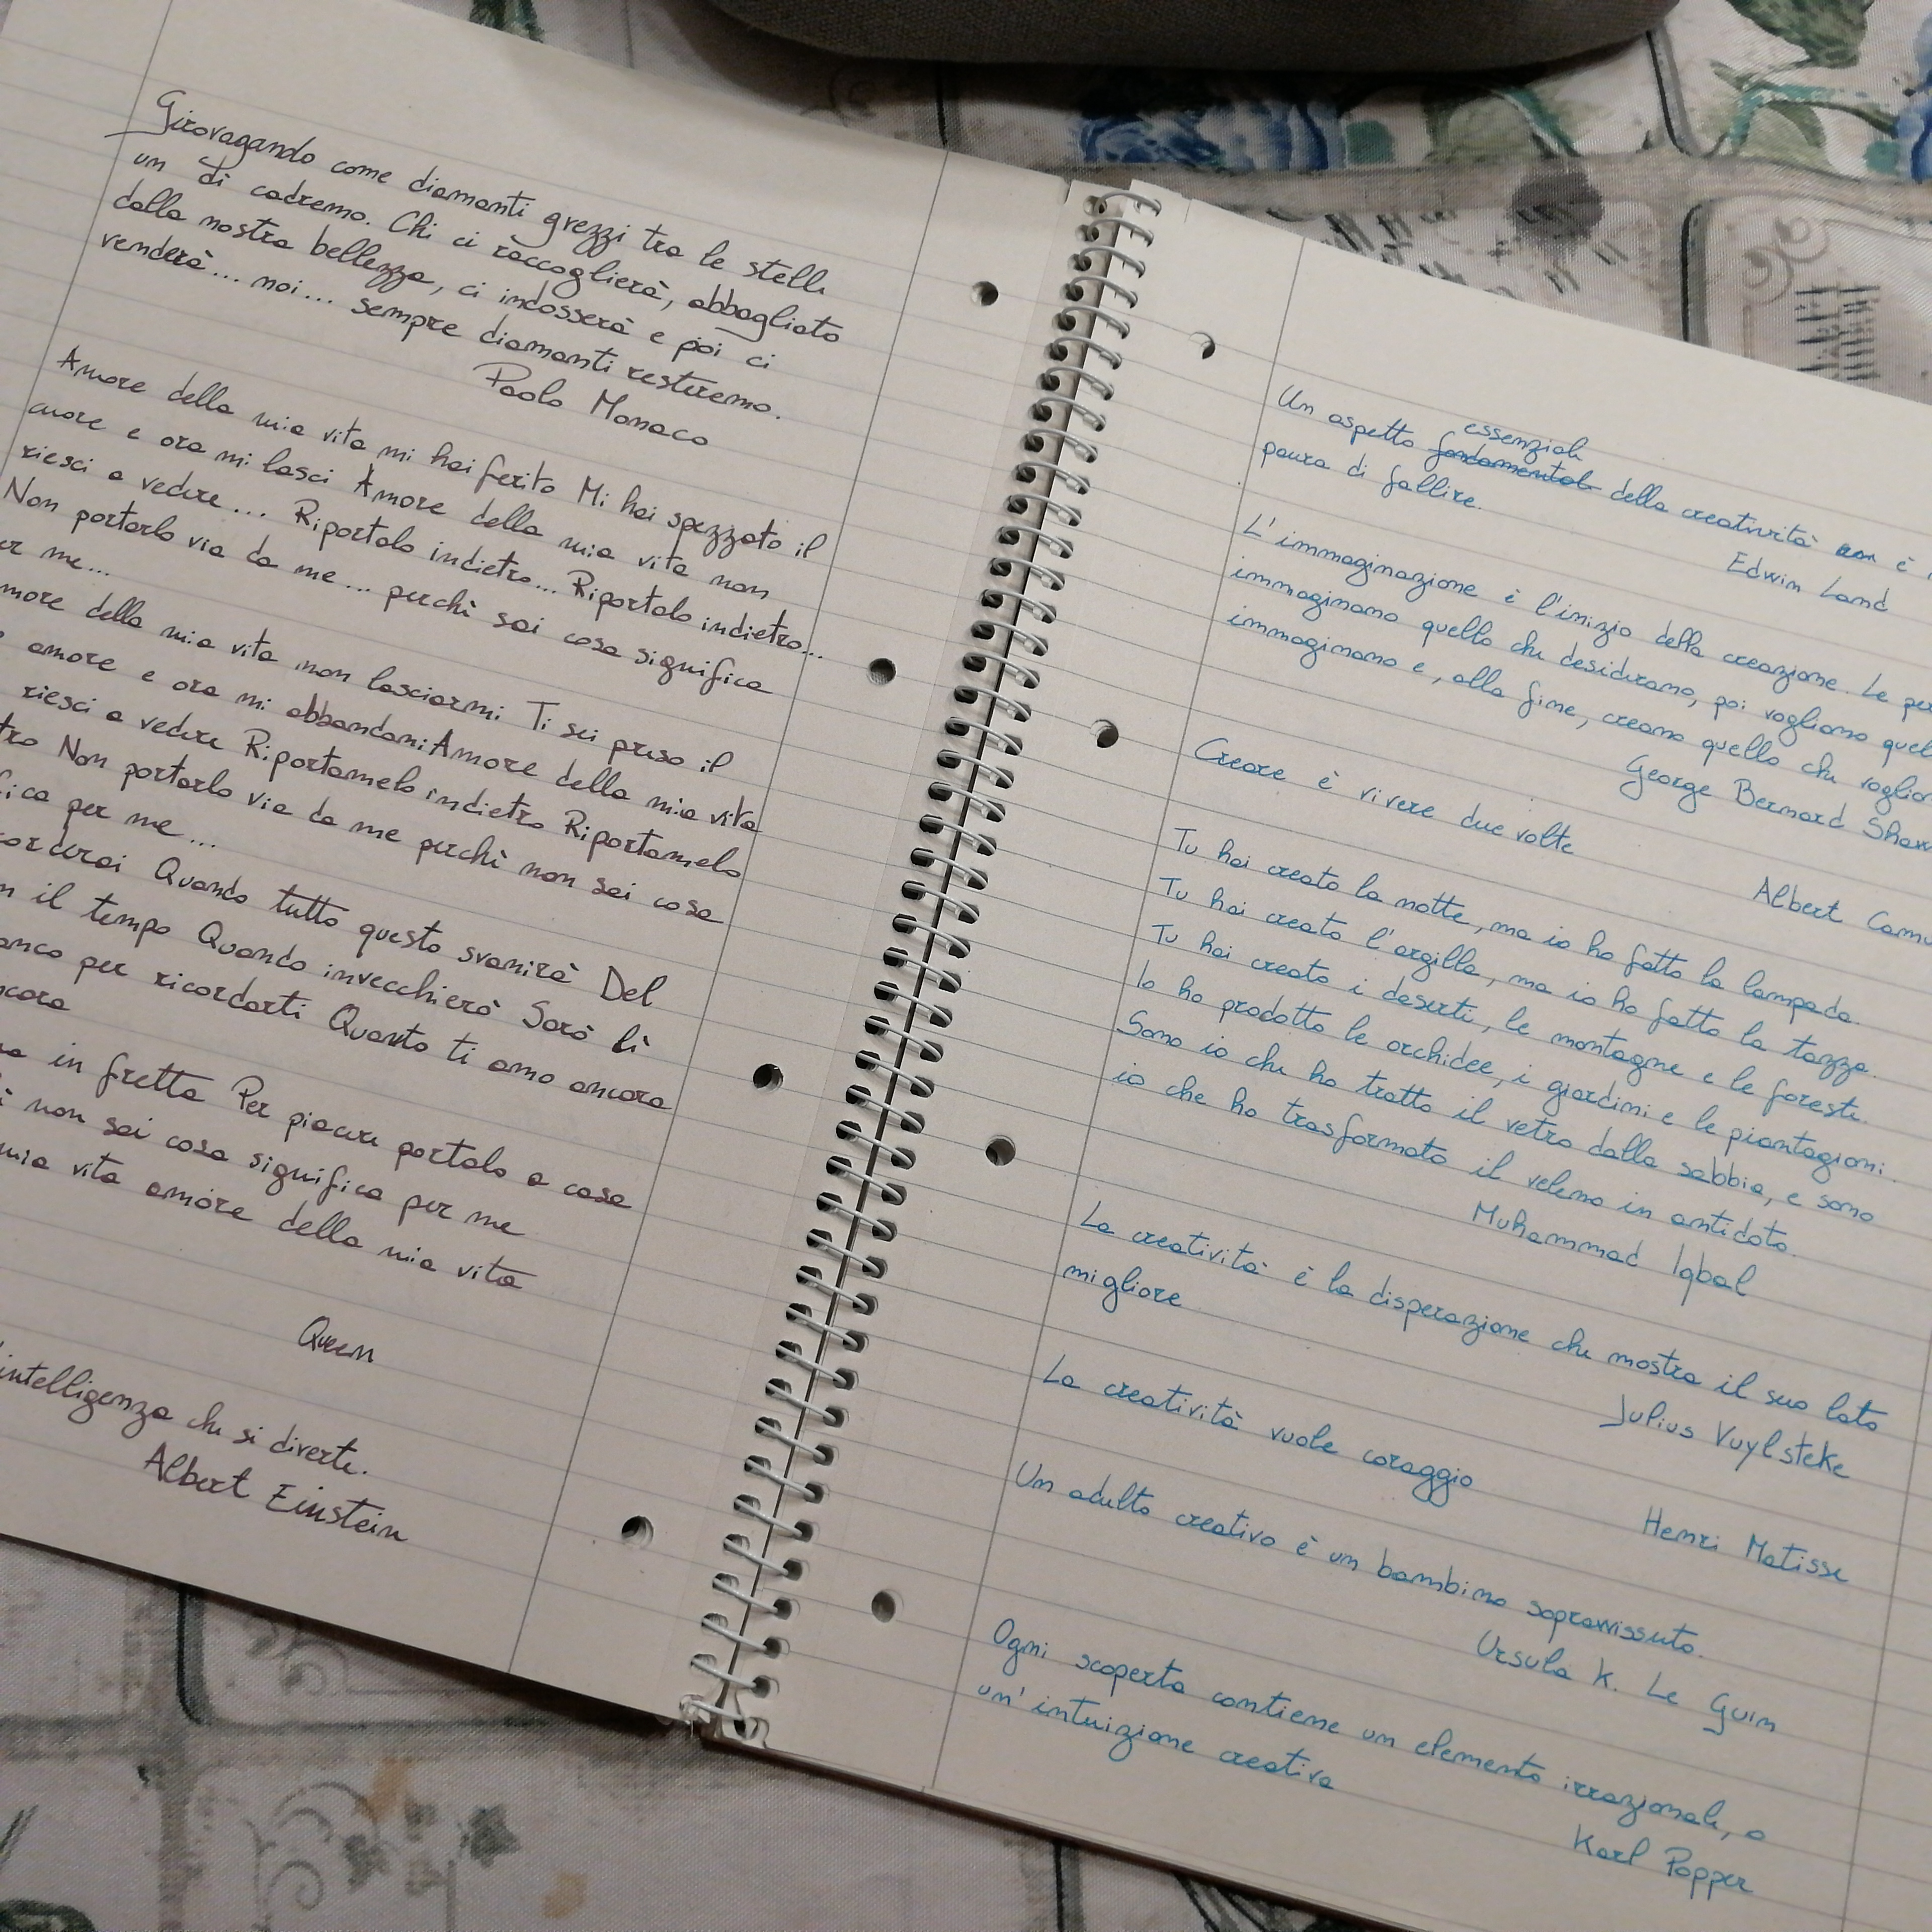 Girovagando come diamanti grezzi tra le stelle
un dì cadremo. Chi ci raccoglierà, abbagliato
dalla nostra bellezza, ci indosserà e poi ci
venderà... noi... sempre diamanti resteremo.
Paolo Monaco
Amore della mia vita mi hai ferito Mi hai spezzato il
cuore e ora mi lasci Amore della mia vita non
riesci a vedere... Riportalo indietro... Riportalo indietro...
Non portarlo via da me... perchè sai cosa significa
er me...
more della mia vita non lasciarmi Ti sei preso il
amore e ora mi abbandoni Amore della mia vita
riesci a vedere Riportamelo indietro Riportamelo
tro Non portarlo via da me perchè non sai cosa
fica per me...
corderai Quando tutto questo svanirà Del
n il tempo Quando invecchierò Sarò lì
anco per ricordarti Quanto ti amo ancora
ncora
na in fretta Per piacere portalo a casa
è non sai cosa significa per me
mia vita amore della mia vita
Queen
'intelligenza che si diverte.
Albert Einstein
Un aspetto fondamentale essenziale della creatività non è
paura di fallire.
Edwin Land
L'immaginazione è l'inizio della creazione. Le per
immaginano quello che desiderano, poi vogliono quel
immaginano e, alla fine, creano quello che voglion
George Bernard Shaw
Creare è vivere due volte
Albert Camu
Tu hai creato la notte, ma io ho fatto la lampada.
Tu hai creato l'argilla, ma io ho fatto la tazza.
Tu hai creato i deserti, le montagne e le foreste.
Io ho prodotto le orchidee, i giardini e le piantagioni.
Sono io che ho tratto il vetro dalla sabbia, e sono
io che ho trasformato il veleno in antidoto.
Muhammad Iqbal
La creatività è la disperazione che mostra il suo lato
migliore
Julius Vuylsteke
La creatività vuole coraggio
Henri Matisse
Un adulto creativo è un bambino sopravvissuto.
Ursula K. Le Guin
Ogni scoperta contiene un elemento irrazionale, o
un'intuizione creativa
Karl Popper